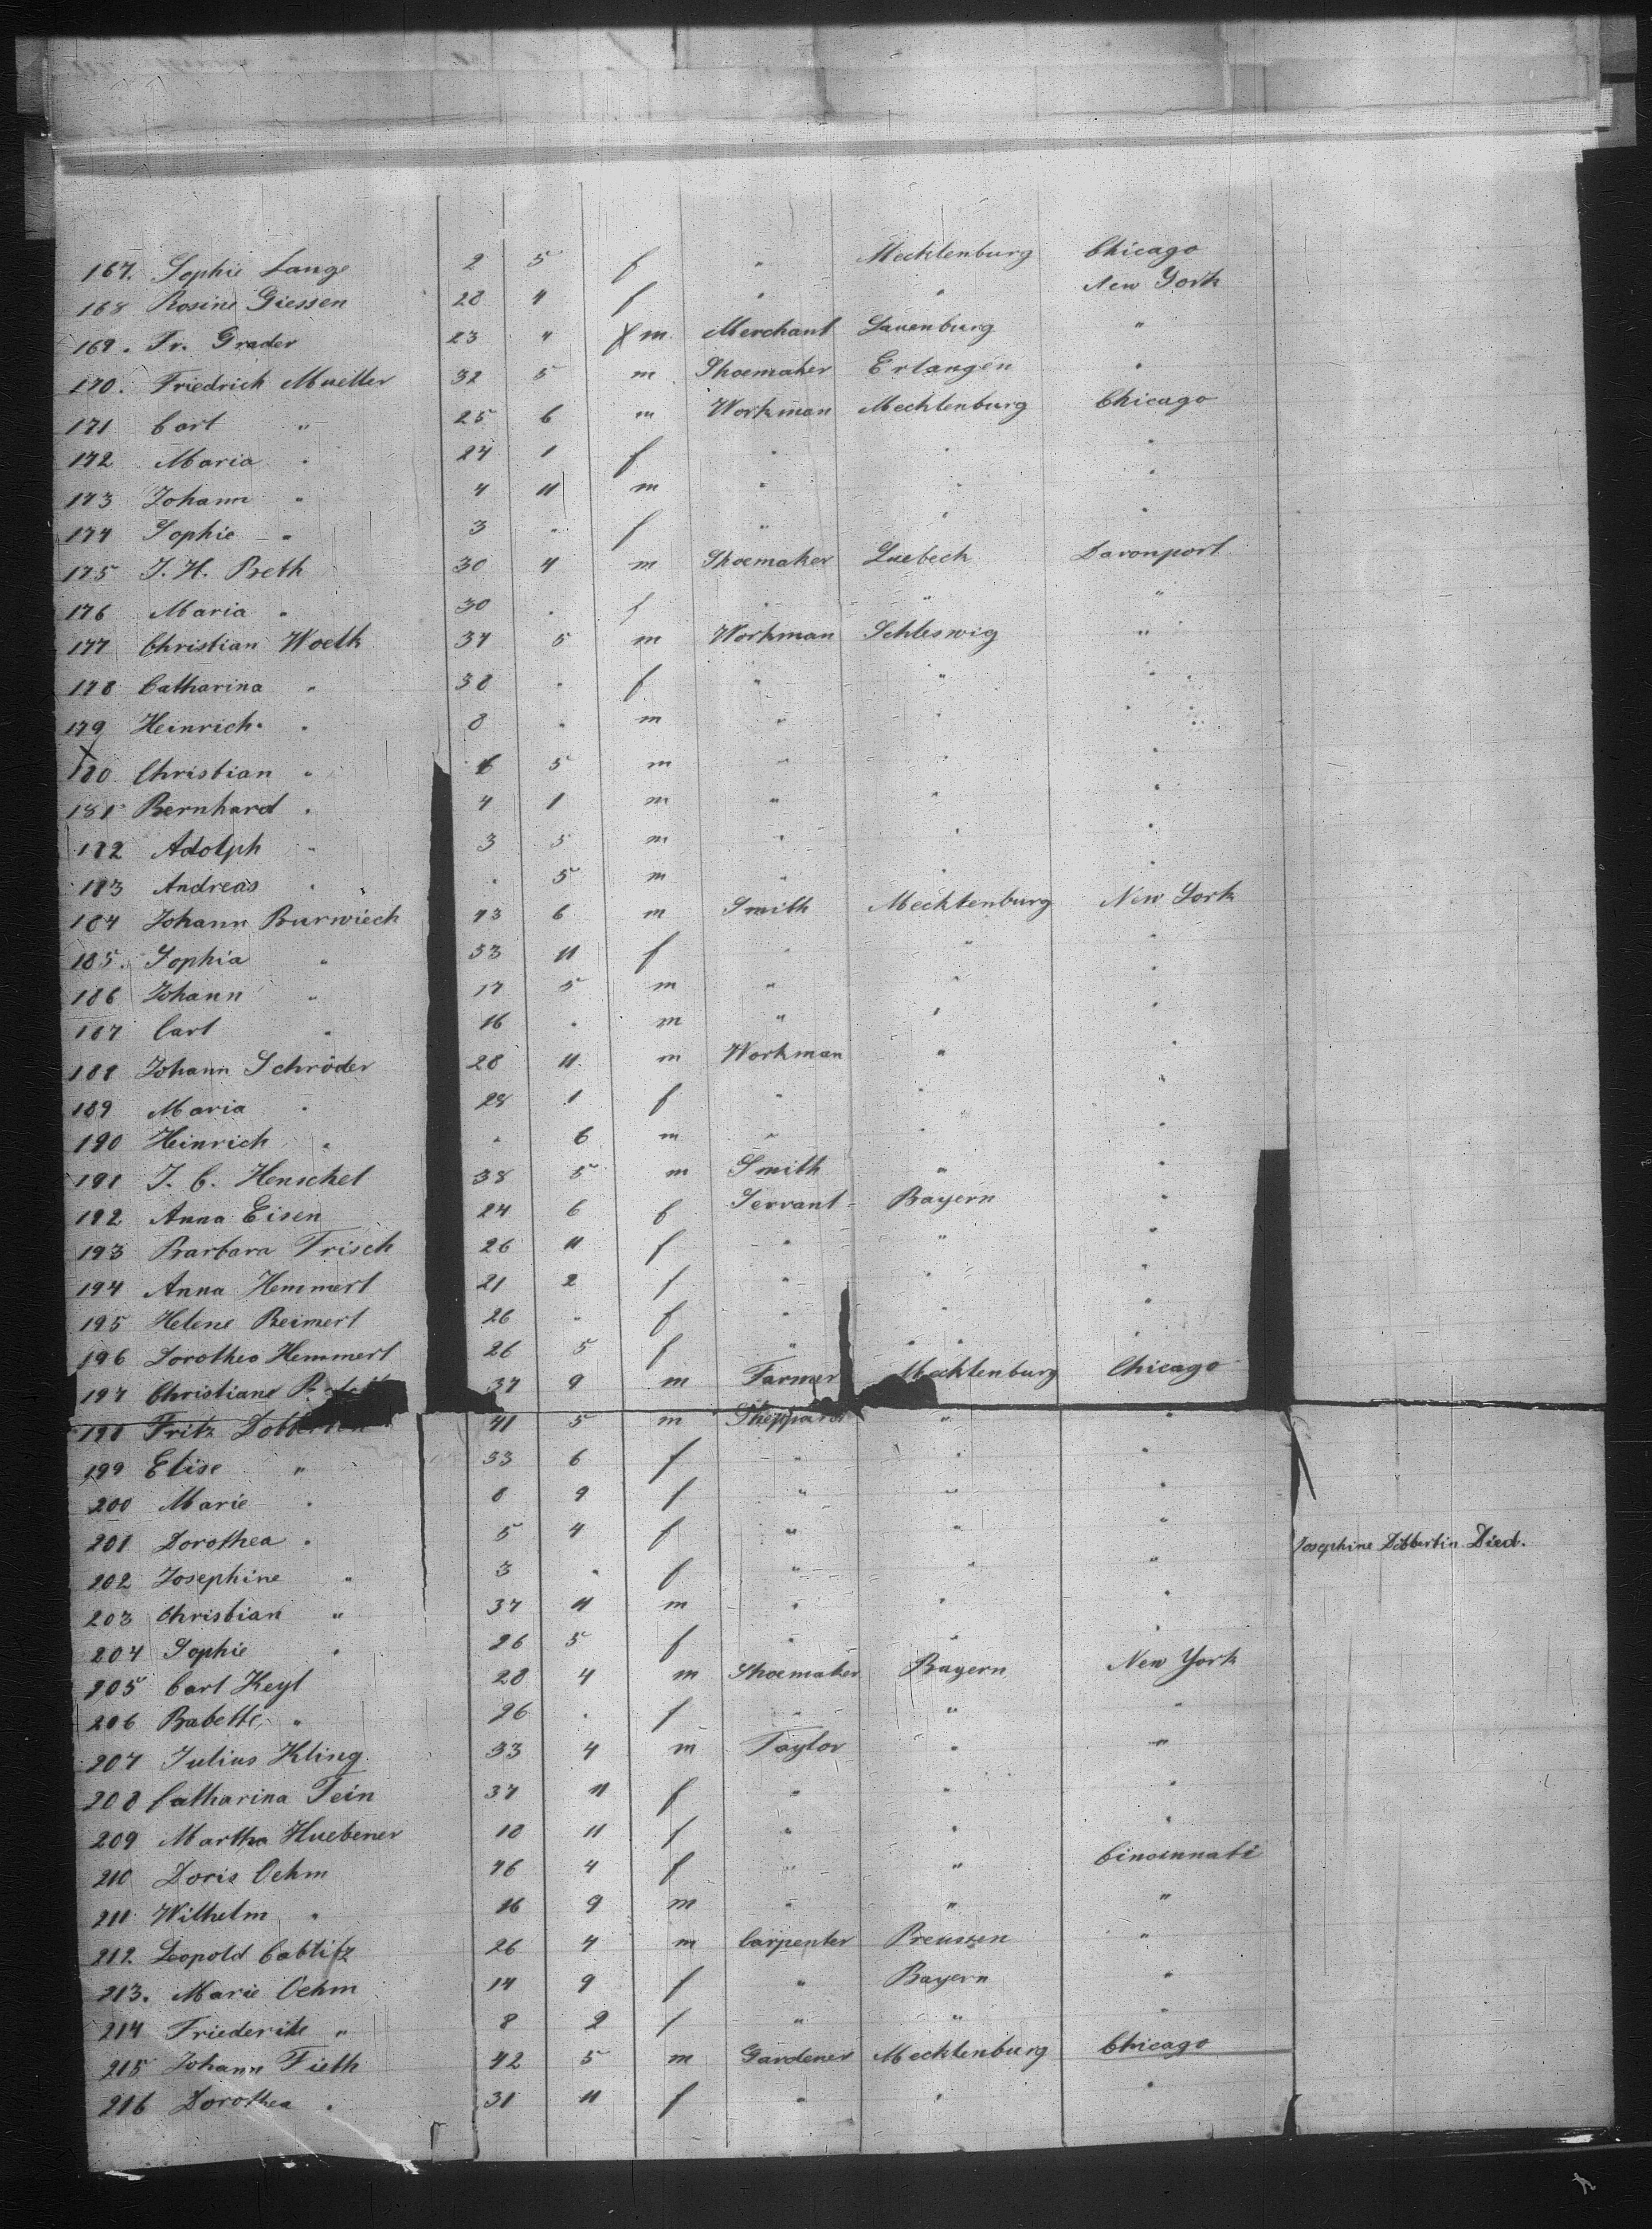 167. Sophie Lange 2 5 f " Mecklenburg Chicago
168 Rosine Giessen 28 4 f " " New York
169. Fr. Grader 23 " m Merchant Lauenburg "
170. Friedrich Mueller 32 5 m Shoemaker Erlangen "
171 Carl " 25 6 m Workman Mecklenburg Chicago
172 Maria " 24 1 f " " "
173 Johann " 4 11 m " " "
174 Sophie " 3 " f " " "
175 J. H. Preth 30 4 m Shoemaker Luebeck Davonport
176 Maria " 30 " f " " "
177 Christian Woeth 37 5 m Workman Schleswig "
178 Catharina " 38 " f " " "
179 Heinrich " 8 " m " " "
180 Christian " 6 5 m " " "
181 Bernhard " 4 1 m " " "
182 Adolph " 3 5 m " " "
183 Andreas " " 5 m " " "
184 Johann Burwieck 43 6 m Smith Mecklenburg New York
185. Sophia " 53 11 f " " "
186 Johann " 17 5 m " " "
187 Carl " 16 " m " " "
188 Johann Schröder 28 11 m Workman " "
189 Maria " 28 1 f " " "
190 Heinrich " " 6 m " " "
191 J. C. Henschel 38 5 m Smith " "
192 Anna Eisen 24 6 f Servant Bayern "
193 Barbara Trisch 26 11 f " " "
194 Anna Hemmert 21 2 f " " "
195 Helene Reimert 26 " f " " "
196 Dorothea Hemmert 26 5 f " " "
197 Christiane 37 9 m Farmer Mecklenburg Chicago
198 Fritz Dobbertin 41 5 m Sheppard " "
199 Elise " 33 6 f " " "
200 Marie " 8 9 f " " "
201 Dorothea " 5 4 f " " " Josephine Dobbertin Died.
202 Josephine " 3 " f " " "
203 Christian " 37 11 m " " "
204 Sophie " 26 5 f " " "
205 Carl Keyl 28 4 m Shoemaker Bayern New York
206 Babette " 26 " f " " "
207 Julius Kling 33 4 m Taylor " "
208 Catharina Fein 37 11 f " " "
209 Martha Huebener 18 11 f " " "
210 Doris Oehm 46 4 f " " Cincinnati
211 Wilhelm " 16 9 m " " "
212. Leopold Cablitz 26 4 m Carpenter Preussen "
213. Marie Oehm 14 9 f " Bayern "
214 Friederike " 8 2 f " " "
215 Johann Fieth 42 5 m Gardener Mecklenburg Chicago
216 Dorothea " 31 11 f " " "